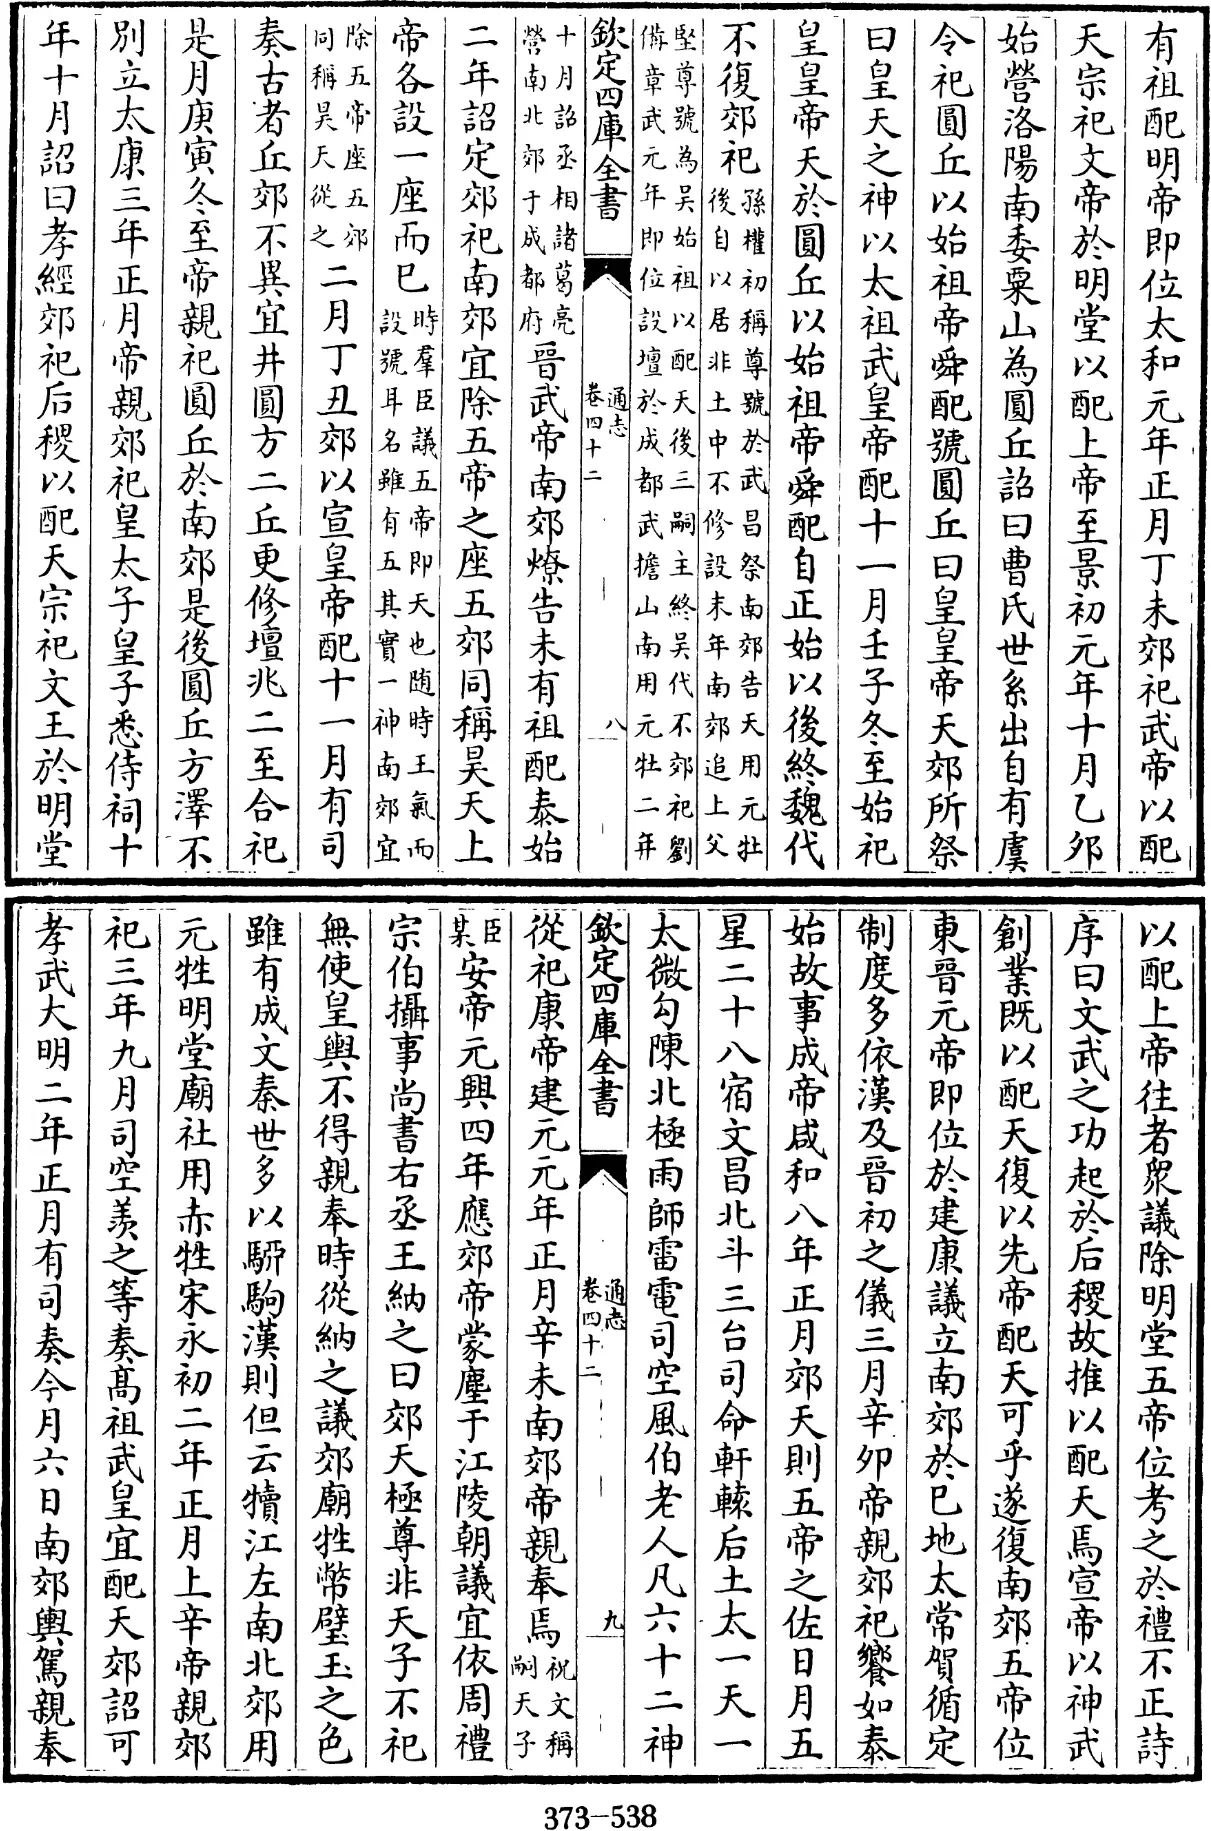 有祖配明帝即位太和元年正月丁未郊祀武帝以配
天宗祀文帝於明堂以配上帝至景初元年十月乙夘
始營洛陽南委粟山為圜丘詔曰曹氏世系出自有虞
令祀圜丘以始祖帝舜配號圜丘曰皇皇帝天郊所祭
曰皇天之神以太祖武皇帝配十一月壬子冬至始祀
皇皇帝天於圜丘以始祖帝舜配自正始以後終魏代
不復郊祀孫權初稱尊號於武昌祭南郊告天用元牡
後自以居非土中不修設末年南郊追上父
堅尊號為吴始祖以配天後三嗣主終吴代不郊祀劉
備章武元年即位設壇於成都武擔山南用元牡二年
欽定四庫全書
通志
卷四十二
八
十月詔丞相諸葛亮
營南北郊于成都府晉武帝南郊燎告未有祖配泰始
二年詔定郊祀南郊宜除五帝之座五郊同稱昊天上
帝各設一座而已時羣臣議五帝即天也随時王氣而
設號耳名雖有五其實一神南郊宜
除五帝座五郊
同稱昊天從之二月丁丑郊以宣皇帝配十一月有司
奏古者丘郊不異宜并圜方二丘更修壇兆二至合祀
是月庚寅冬至帝親祀圜丘於南郊是後圜丘方澤不
別立太康三年正月帝親郊祀皇太子皇子悉侍祠十
年十月詔曰孝經郊祀后稷以配天宗祀文王於明堂
以配上帝往者衆議除明堂五帝位考之於禮不正詩
序曰文武之功起於后稷故推以配天焉宣帝以神武
創業既以配天復以先帝配天可乎遂復南郊五帝位
東晉元帝即位於建康議立南郊於巳地太常賀循定
制度多依漢及晉初之儀三月辛卯帝親郊祀饗如泰
始故事成帝咸和八年正月郊天則五帝之佐日月五
星二十八宿文昌北斗三台司命軒轅后土太一天一
太微勾陳北極雨師雷電司空風伯老人凡六十二神
欽定四庫全書
通志
卷四十二
九
從祀康帝建元元年正月辛未南郊帝親奉焉祝文稱
嗣天子
臣
某安帝元興四年應郊帝蒙塵于江陵朝議宜依周禮
宗伯攝事尚書右丞王納之曰郊天極尊非天子不祀
無使皇輿不得親奉時從納之議郊廟牲幣璧玉之色
雖有成文秦世多以騂駒漢則但云犢江左南北郊用
元牲明堂廟社用赤牲宋永初二年正月上辛帝親郊
祀三年九月司空羨之等奏髙祖武皇宜配天郊詔可
孝武大明二年正月有司奏今月六日南郊輿駕親奉
373-538